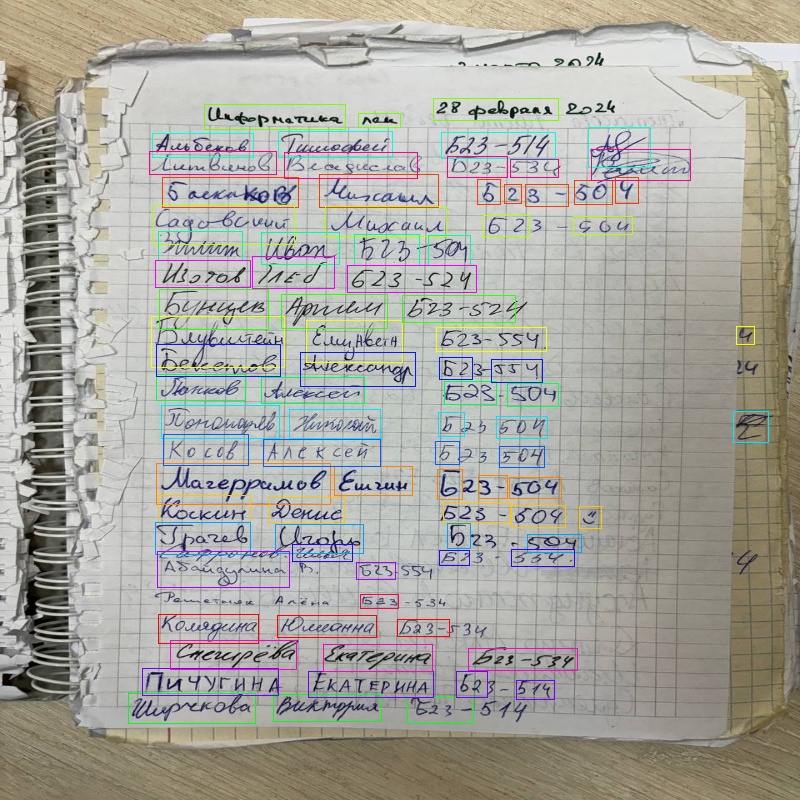 Информатика лек 28 февраля 2024
Альбеков Тимофей Б23-514
Литвинов Владислав Б23-534
Баскаков Михаил Б23-504
Садовский Михаил Б23-504
Иван Б23-504
Изотов Глеб Б23-524
Бунцев Артем Б23-524
Блувштейн Елизавета Б23-554
Бекетов Александр Б23-554
Панков Алексей Б23-504
Пономарёв Николай Б23 504
Косов Алексей Б23 504
Магеррамов Ельчин Б23-504
Коскин Денис Б23-504
Грачев Игорь Б23-504
Сафронов Илья Б23-534
Абайдулина В. Б23 554
Решетняк Алёна Б23-534
Комядина Юлианна Б23-534
Снегирёва Екатерина Б23-534
ПИЧУГИНА ЕКАТЕРИНА Б23-514
Ширчкова Виктория Б23-514